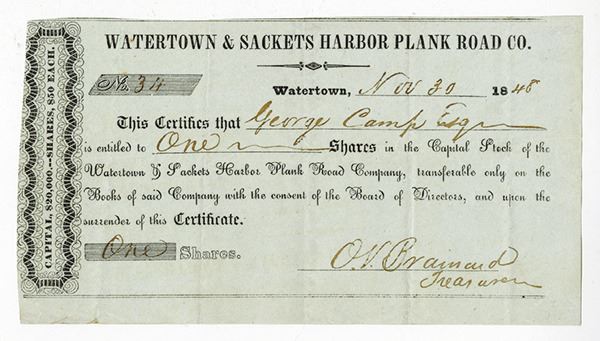 WATERTOWN & SACKETS HARBOR PLANK ROAD CO.
No. 34
Watertown, Nov 30 1848
This Certifies that George Camp Esq
is entitled to One Shares in the Capital Stock of the
Watertown & Sackets Harbor Plank Road Company, transferable only on the
Books of said Company with the consent of the Board of Directors, and upon the
surrender of this Certificate.
One Shares.
O.V. Brainard
Treasurer
CAPITAL, $20,000.--SHARES, $50 EACH.